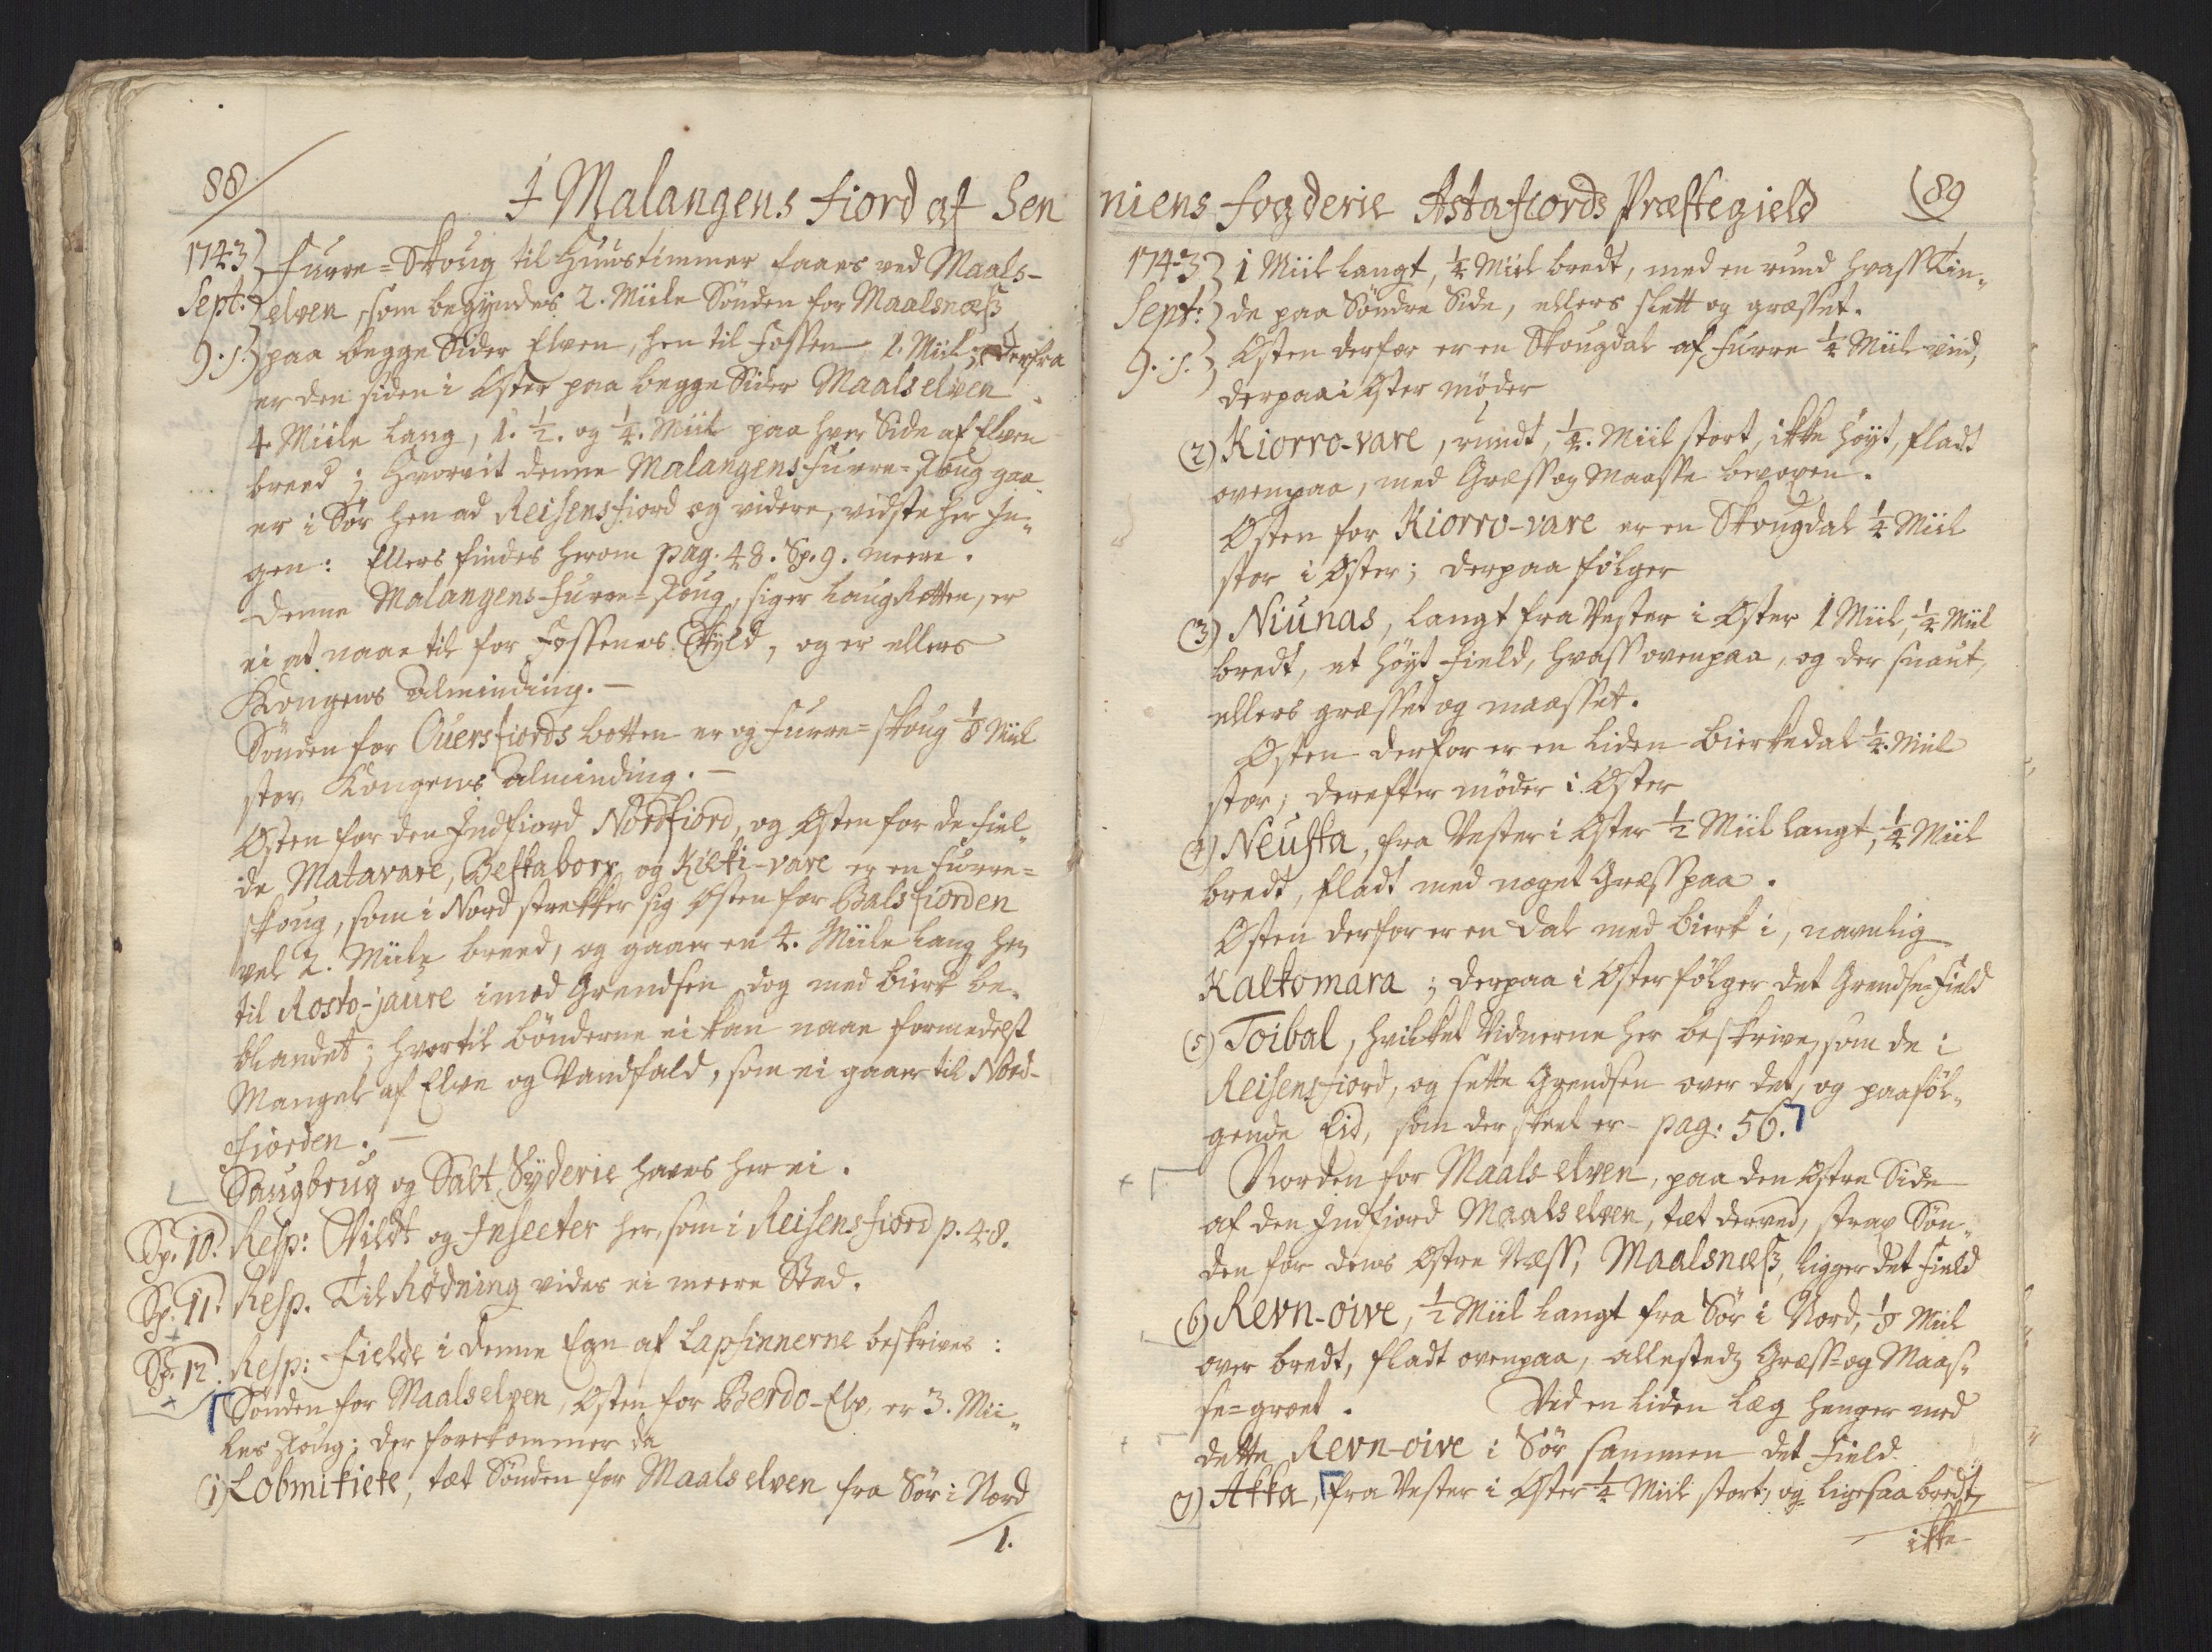 88
I Malangens Fiord af Sen
1743 Furre=Skoug til Huustimmer faaes ved Maals-
Sept: elven, som begyndes 2. Miile Sønden for Maalsnæss
9. s. paa begge Sider Elven, hen til Fossen 1. Miil; derfra
er den siden i Øster paa begge Sider Maalselven
4 Miile lang, 1. ½. og ¼. Miil paa hver Side af Elven
breed; hvorvit denne Malangens Furre=Skoug gaa
er i Sør hen ad Reisensfiord og videre, vidste her In„
gen: Ellers findes herom pag. 48. Sp. 9. meere.
Denne Malangens-Furre=Skoug, siger LaugRetten, er
ei at naae til for Fossenes Skyld, og er ellers
Kongens Alminding. —
Sønden for Ouersfiords botten er og Furre=skoug ⅛ Miil
stor, Kongens Alminding. —
Østen for den Indfiord Nordfiord, og Østen for de Fiel„
de Matavare, Beskaborx og Kilki-vare er en Furre=
skoug, som i Nord strekker sig Østen for Balsfiorden
vel 2. Miile breed, og gaaer en 4. Miile lang hen
til Rosto-jaure imod Grendsen dog med Birk be„
blandet; hvortil bønderne ei kan naae formedelst
Mangel af Elve og Vandfald, som ei gaaer til Nord-
fiorden. —
Saugbrug og Salt Syderie haves her ei.
Sp. 10. Resp: Vildt og Insecter her, som i Reisensfiord p. 48.
Sp. 11. Resp. Til Rødning vides ei meere Sted.
Sp. 12. Resp: Fielde i denne Egn af Lapfinnerne beskrives:
Sønden for Maalselven, Østen for Berdo-Elv, er 3. Mii„
les skoug; der forekommer da
(1) Lobmikiete, tæt Sønden for Maalselven fra Sør i Nord
1.
niens Fogderie Astafiords Præstegield
89
1743 1 Miil langt, ¼ Miil bredt, med en rund hvass Tin„
Sept: de paa Søndre Side, ellers slett og græsset.
9. s. Østen derfor er en Skougdal af Furre ¼ Miil viid,
derpaa i Øster møder
(2) Kiorro-vare, rundt, ¼. Miil stort, ikke høyt, fladt
ovenpaa, med Græss og Maasse bevoxen.
Østen for Kiorro-vare er en Skougdal ¼ Miil
stor i Øster; derpaa følger
(3) Niunas, langt fra Vester i Øster 1 Miil, ¼ Miil
bredt, et høyt Field, hvass ovenpaa, og der snaut,
ellers græsset og maasset.
Østen derfor er en liden bierkedal ¼. Miil
stor; derefter møder i Øster
(4) Neuska, fra Vester i Øster ½ Miil langt, ¼ Miil
bredt, fladt med noget Græss paa.
Østen derfor er en dal med bierk i, navnlig
Kaltomara; derpaa i Øster følger det Grendse=Field
(5) Toibal, hvilket Vidnerne her beskrive, som de i
Reisensfiord, og sette Grendsen over det, og paaføl„
gende Eid, som der skeet er pag: 56.
Norden for Maals elven, paa den Østre Side
af den Indfiord Maalselven, tæt derved, strax Søn„
den for dens Østre Næss, Maalsnæss, ligger det Field
(6) Revn-oive, ½ Miil langt fra Sør i Nord, ⅛ Miil
over bredt, fladt ovenpaa, allestedz Græss= og Maas„
se=groet. Ved en liden Læg henger med
dette Revn-oive i Sør sammen det Field
(7) Akka, fra Vester i Øster ¼ Miil stort, og ligesaa bredt,
ikke